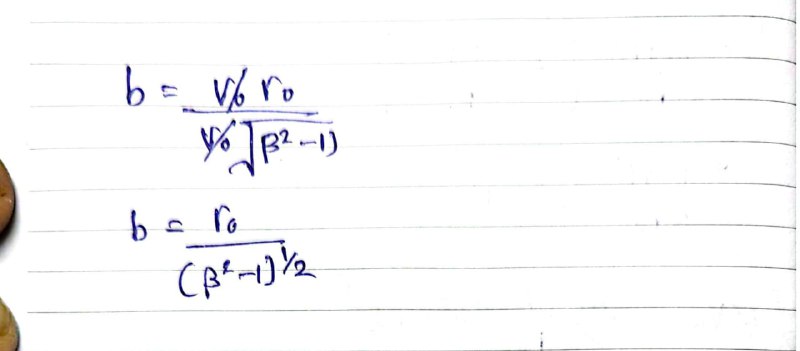 b = V₀ r₀ / V₀ √(β² - 1)
b = r₀ / (β² - 1)^1/2